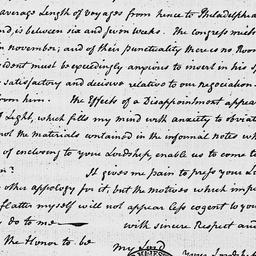 average Length of voyages from hence to Philadelphia
nd, is between six and seven weeks. The congress mich
in november; and of their punctuality there is no Room
ident must be exceedingly anxious to insert in his s
satisfactory and decisive relative to our negociation
from him. The Effects of a Disappointment appear
Light, which fills my mind with anxiety to obviate
not the materials contained in the informal notes wh
of enclosing to your Lordship, enable us to come to
n? It gives me pain to press your L
other appology for it, but the motives which impe
flatter myself will not appear less cogent to your
do to me — with sincere Respect and
the Honor to be My Lord
yours Lordship